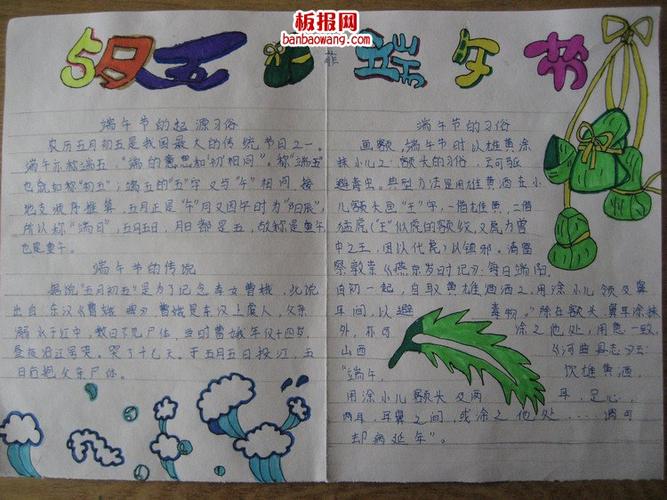 板报网
banbaowang.com
5月五
端午节
端午节的起源习俗
农历五月初五是我国最大的传统节日之一。
端午亦称端五，"端的意思和"初"相同"。称"端五"
也就如称"初五"；端五的"五"字又与"午"相同，按
地支顺序推算，五月正是"午"月又因午时为"阳辰"，
所以称"端日"，五月五日，月日都是五，故称是重午
也是重午。
端午节的传说
据说"五月初五"是为了纪念孝女曹娥，此说
出自东汉《曹娥 》曹娥是东汉上虞人，父亲
溺于江中，数日不见尸体，当时曹娥年仅十四岁，
昼夜沿江号哭。哭了十七天，于五月五日投江，五
日后抱父亲尸体。
端午节的习俗
画额，端午节时以雄黄涂
抹小儿之额头的习俗，云可驱
避毒虫。典型方法是用雄黄酒在小
儿额头画"王"字，一借雄黄，二借
猛虎("王"似虎的额纹，又虎为兽
中之王，因以代虎)以镇邪。清富
察敦崇《燕京岁时记》：每日端阳，
自初一起，自取雄黄酒洒之，用涂小儿领及鼻
耳间，以避毒物。"除在额头、鼻耳涂抹
外，亦可涂之他处，用意一致。
山西《河曲县志》云：
"端午，饮雄黄酒，
用涂小儿额头及两耳，足心，
两耳、耳鼻之间，或涂之他处……谓可
却病延年"。